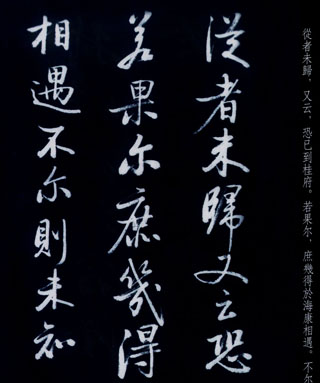 從者未歸，又云，恐已到桂府。若果尔，庶幾得於海康相遇。不尔
從者未歸又云恐
若果尔庶幾得
相遇不尔則未知